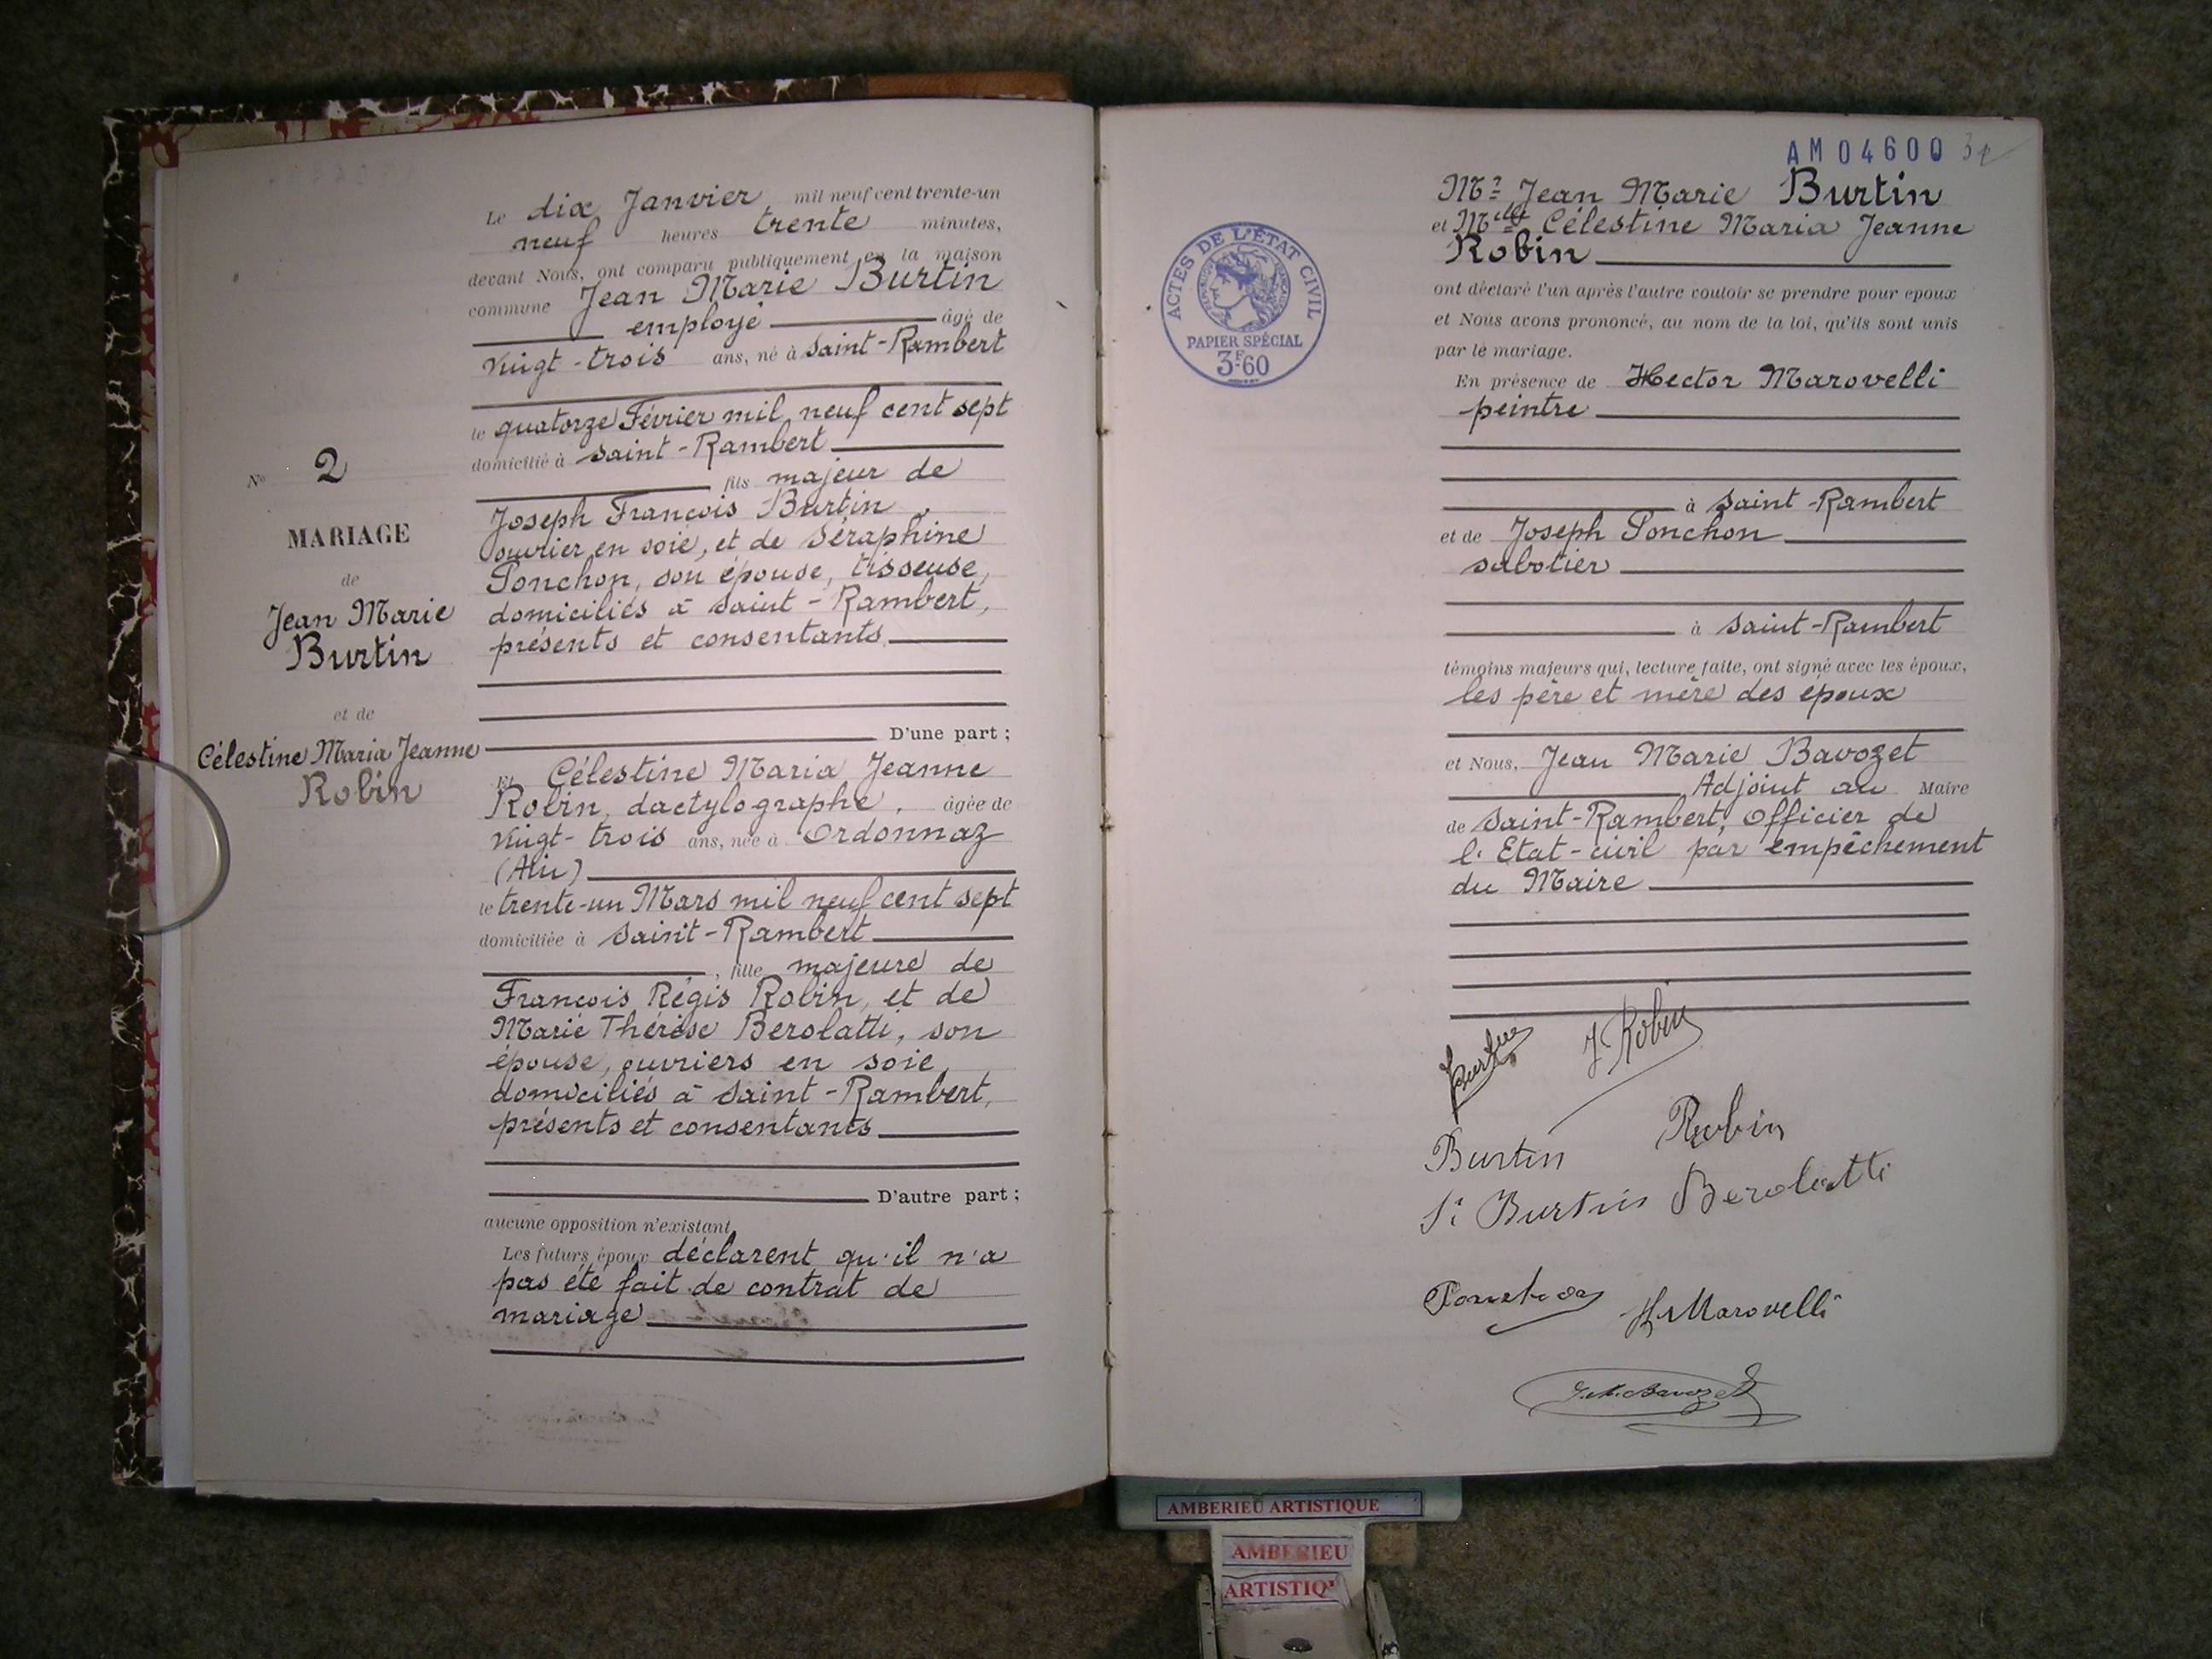 N° 2
MARIAGE
de
Jean Marie
Burtin
et de
Célestine Maria Jeanne
Robin
Le dix Janvier mil neuf cent trente-un
neuf heures trente minutes,
devant Nous, ont comparu publiquement en la maison
commune Jean Marie Burtin
employé âgé de
vingt-trois ans, né à Saint-Rambert
le quatorze Février mil neuf cent sept
domicilié à Saint-Rambert
fils majeur de
Joseph François Burtin,
ouvrier en soie, et de Séraphine
Ponchon, son épouse, tisseuse,
domiciliés à Saint-Rambert,
présents et consentants
D'une part ;
Et Célestine Maria Jeanne
Robin, dactylographe, âgée de
vingt-trois ans, née à Ordonnaz
(Ain)
le trente-un Mars mil neuf cent sept
domiciliée à Saint-Rambert
, fille majeure de
François Régis Robin, et de
Marie Thérèse Berolatti, son
épouse, ouvriers en soie,
domiciliés à Saint-Rambert,
présents et consentants
D'autre part ;
aucune opposition n'existant,
Les futurs époux déclarent qu'il n'a
pas été fait de contrat de
mariage
AM04600
ACTES DE L'ÉTAT CIVIL
RÉPUBLIQUE FRANÇAISE
PAPIER SPÉCIAL
3F60
Mr Jean Marie Burtin
et Mlle Célestine Maria Jeanne
Robin
ont déclaré l'un après l'autre vouloir se prendre pour époux
et Nous avons prononcé, au nom de la loi, qu'ils sont unis
par le mariage.
En présence de Hector Marovelli
peintre
à Saint-Rambert
et de Joseph Ponchon
sabotier
à Saint-Rambert
témoins majeurs qui, lecture faite, ont signé avec les époux,
les père et mère des époux
et Nous, Jean Marie Bavozet
Adjoint au Maire
de Saint-Rambert, Officier de
l'Etat-civil par empêchement
du Maire
Burtin J Robin
Burtin Robin
Burtin Berolatti
Ponchon H. Marovelli
J.M. Bavozet
AMBERIEU ARTISTIQUE
AMBERIEU
ARTISTIQ